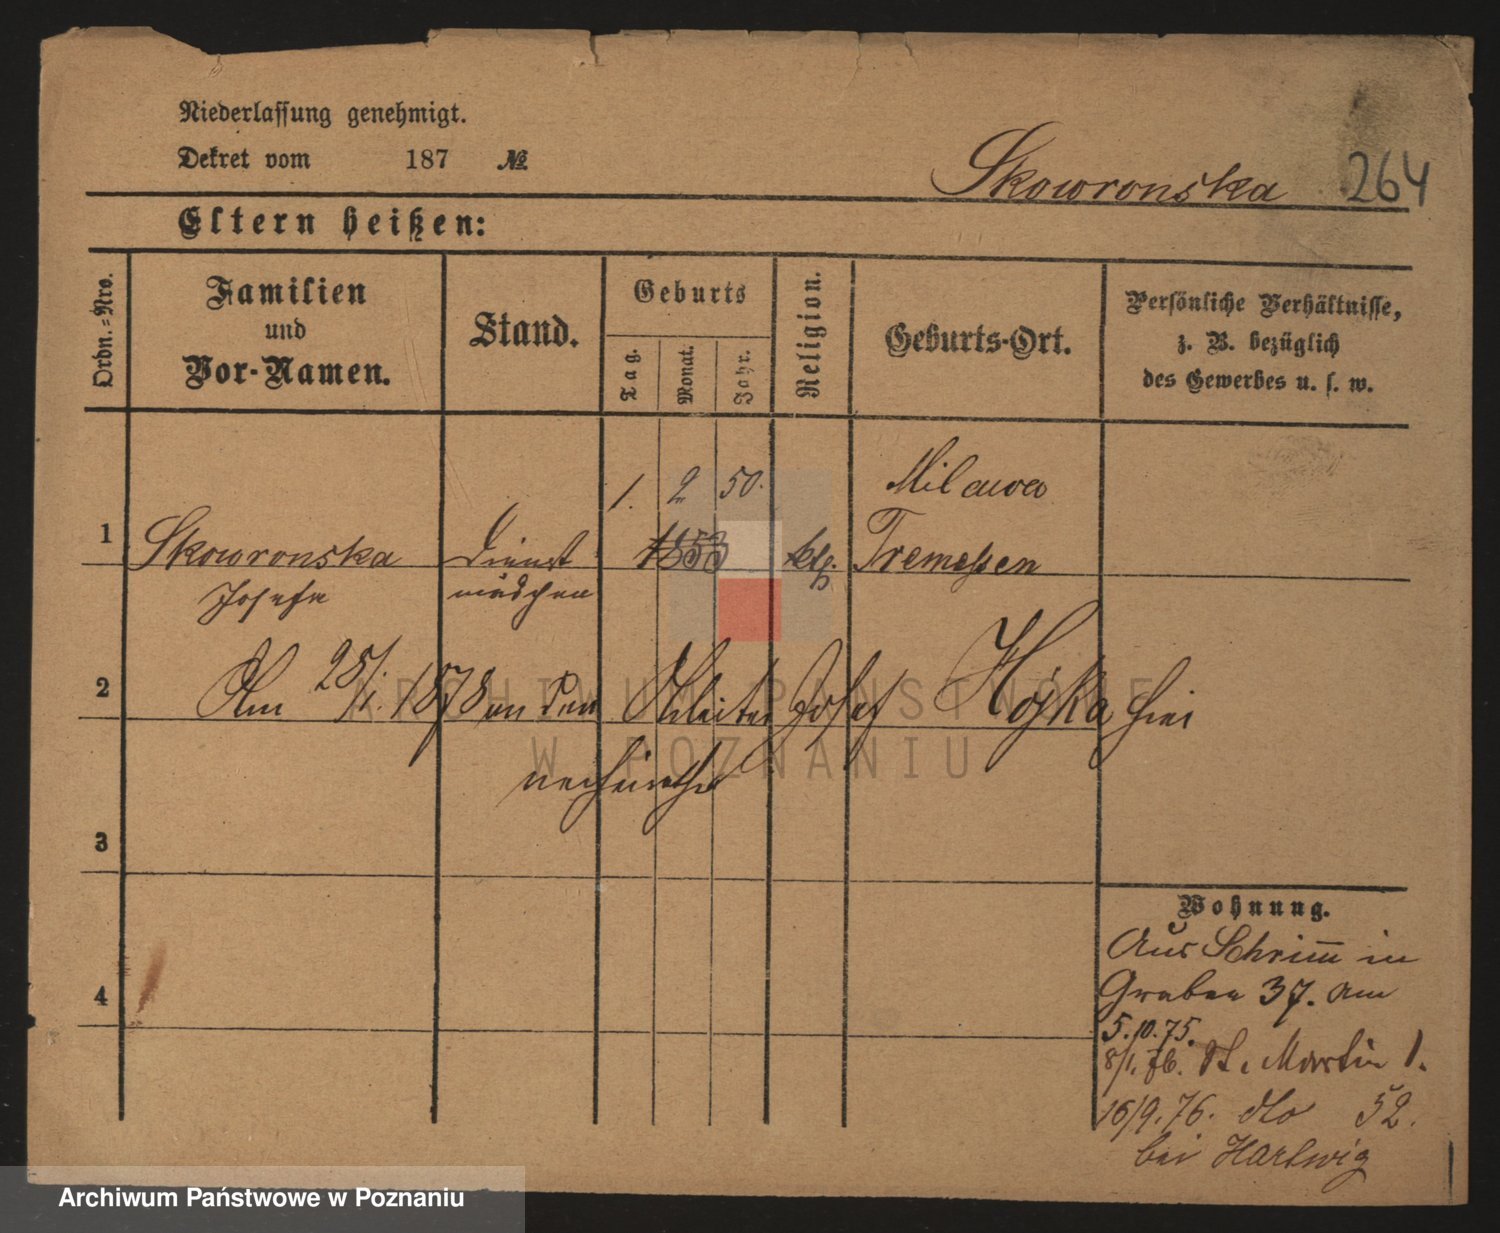 Niederlassung genehmigt.
Dekret vom 187 №
Skowronska 264
Eltern heißen:
Ordn.=Nro.
Familien
und
Vor-Namen.
Stand.
Geburts
Tag.
Monat.
Jahr.
Religion.
Geburts-Ort.
Persönliche Verhältnisse,
z. B. bezüglich
des Gewerbes u. s. w.
1. 2 50. Milawa
1 Skowronska Dienst 1853 kth. Tremessen
Josefa mädchen
2 Am 25/1. 1878 an den Arbeiter Josef Hojka hier
verheirathet
3
4
Wohnung.
Aus Schrimm in
Graben 37. am
5.10.75.
8/1. 76. St. Martin 1.
16/9. 76. dto 52.
bei Hartwig
ARCHIWUM PAŃSTWOWE
W POZNANIU
Archiwum Państwowe w Poznaniu